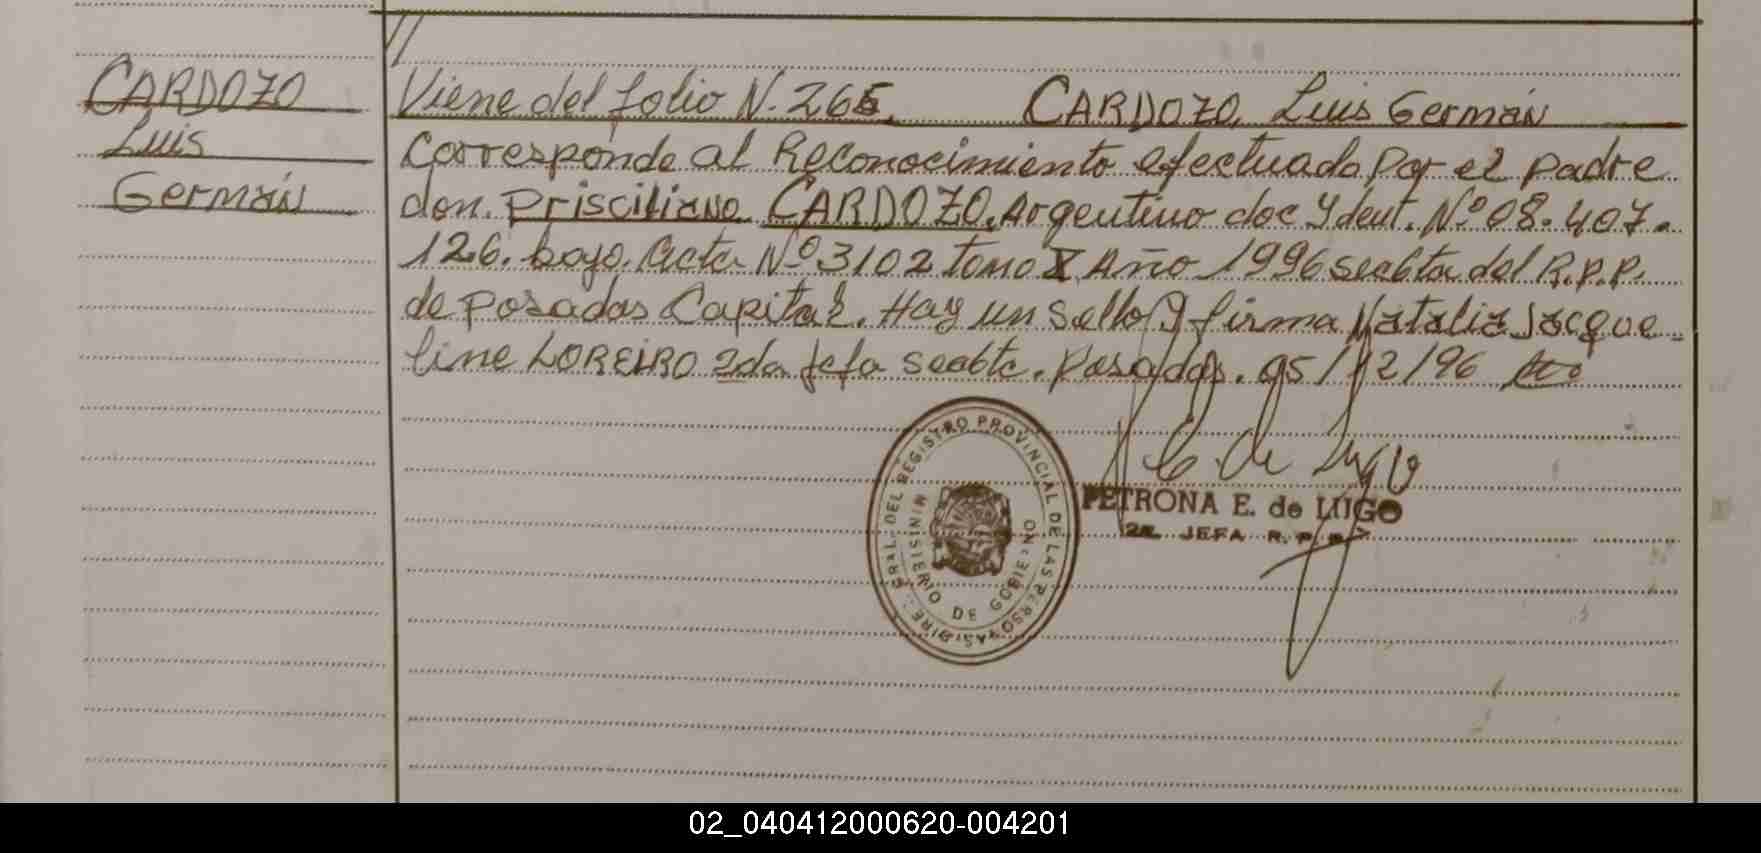 //
CARDOZO
Luis
Germán
Viene del folio N. 265. CARDOZO, Luis Germán
Corresponde al Reconocimiento efectuado por el padre
don. Prisciliano CARDOZO, Argentino doc Ydent. Nº 08.407.
126. bajo. Acta Nº 3102 tomo X Año 1996 secbta del R.P.P.
de Posadas Capital. Hay un sello y firma Natalia Jacque
line LOREIRO 2da jefa secbta. Posadas. 05/12/96
E. de Lugo
PETRONA E. de LUGO
2a. JEFA R. P. P.
DIRE. GRAL. DEL REGISTRO PROVINCIAL DE LAS PERSONAS
MINISTERIO DE GOBIERNO
02_040412000620-004201